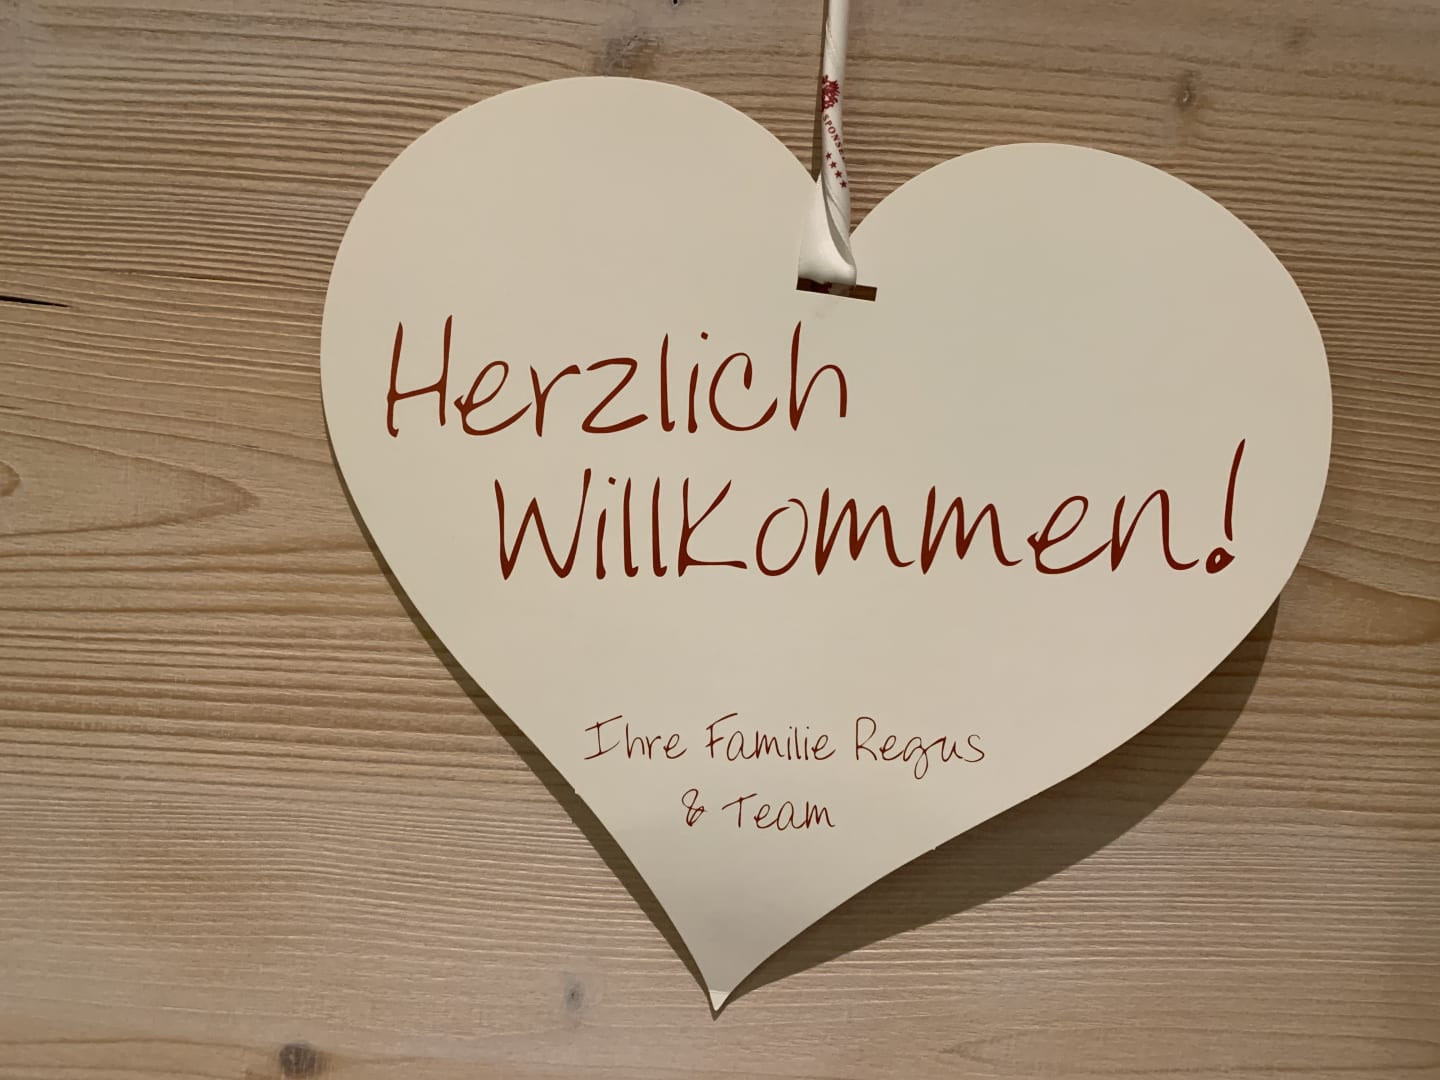 SPONSE
Herzlich
Willkommen!
Ihre Familie Regus
& Team